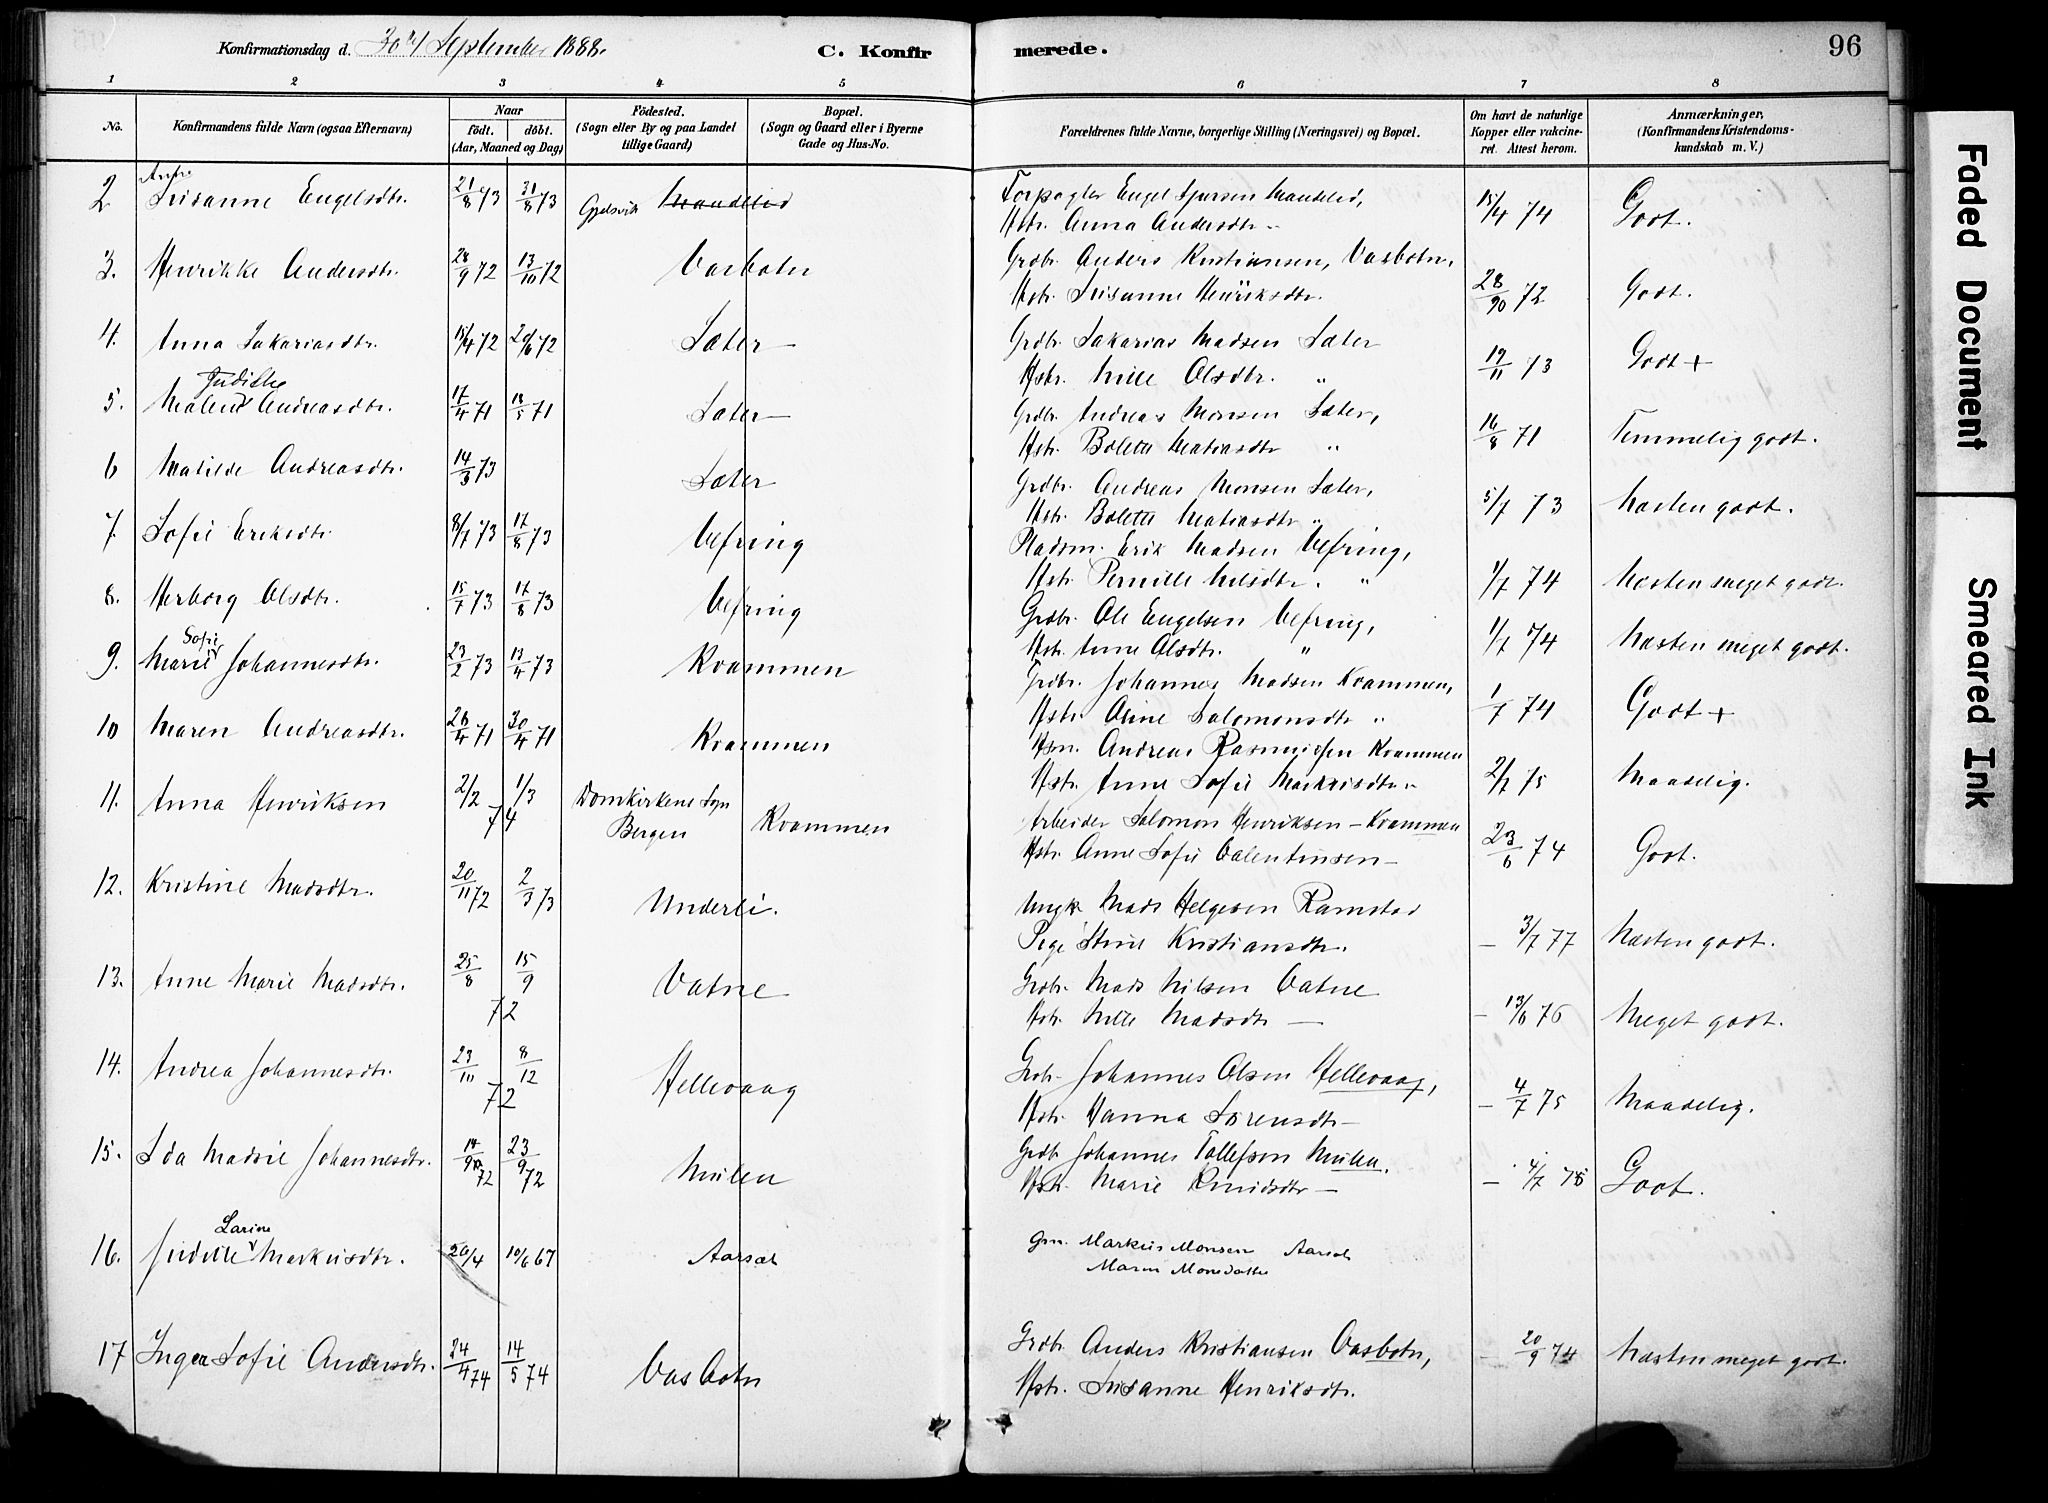 Konfirmationsdag d. 30te September 1888.
C. Konfir
merede.
96
1 2 3 4 5 6 7 8
No.
Konfirmandens fulde Navn (ogsaa Efternavn)
Naar
födt. döbt.
(Aar, Maaned og Dag)
Födested.
(Sogn eller By og paa Landet
tillige Gaard)
Bopæl.
(Sogn og Gaard eller i Byerne
Gade og Hus-No.
Forældrenes fulde Navne, borgerlige Stilling (Næringsvei) og Bopæl.
Om havt de naturlige
Kopper eller vakcine-
ret. Attest herom.
Anmærkninger,
(Konfirmandens Kristendoms-
kundskab m. V.)
2 Susanne Engelsdtr. 21/8 73 31/8 73 Mandelid Engel Mandelid, 15/4 74 Godt.
Hstr. Anna Andersdtr. "
3. Henrikke Andersdtr. 28/9 72 13/10 72 Vasbotn Grdbr. Anders Kristiansen, Vasbotn,
Hstr. Susanne Henriksdtr. 72 Godt.
4. Anna Sakariasdtr. 15/4 72 72 Sæter Grdbr. Sakarias Madsen Sæter
Hstr. Nille Olsdtr. " 19/11 73 Godt +
Judithe
5. Malene Andreasdtr. 17/4 71 18/5 71 Sæter Grdbr. Andreas Monsen Sæter,
Hstr. Bolette Matiasdtr " 16/8 71 Temmelig godt.
6 Matilde Andreasdtr. 14/3 73 Sæter Grdbr. Andreas Monsen Sæter,
Hstr. Bolette Matiasdtr " 5/7 73 Næsten godt.
7. Sofie Eriksdtr. 8/7 73 17/8 73 Vefring Pladsm. Erik Madsen Vefring,
Hstr. Pernille Nilsdtr. " 1/7 74 Næsten meget godt.
8. Herborg Olsdtr. 15/7 73 17/8 73 Vefring Grdbr. Ole Engelsen Vefring,
Hstr. Anne Olsdtr. " 1/7 74 Næsten meget godt.
Sofie
9. Marie Johannesdtr. 23/2 73 13/4 73 Kvammen Grdbr. Johannes Madsen Kvammen,
Hstr. Oline Salomonsdtr " 1/7 74 Godt +
10 Maren Andreasdtr. 26/4 71 30/4 71 Kvammen Hsm. Andreas Rasmussen Kvammen
Hstr. Anne Sofie Markusdtr " 2/7 75 Maadelig.
11. Anna Henriksen 2/2 1/3 74 Domkirkens Sogn
Bergen Kvammen Arbeider Salomon Henriksen - Kvammen
Hstr. Anne Sofie Valentinsen - 23/6 74 Godt.
12. Kristine Madsdtr. 20/11 72 2/3 73 Underli. Ungk. Mads Helgesen Ramstad
Pige Stine Kristiansdtr. - 3/7 77 Næsten godt.
13. Anne Marie Madsdtr. 25/8 15/9 72 Vatne Grdbr. Mads Nilsen Vatne
Hstr. Nille Madsdtr - - 13/6 76 Meget godt.
14. Andrea Johannesdtr. 23/10 8/12 72 Hellevaag Grdbr. Johannes Olsen Hellevaag,
Hstr. Hanna Sørensdtr - - 4/7 75 Maadelig.
15. Ida Madsie Johannesdtr. 14/9 72 23/9 72 Mulen Grdbr. Johannes Tollefsen Mulen.
Hstr. Marie Knudsdtr - - 4/7 75 Godt.
Larine
16. Judithe Markusdtr. 20/4 10/6 67 Aarsæt Gm. Markus Monsen Aarsæt
Maren Monsdatter
17 Inger Sofie Andersdtr. 24/4 74 14/5 74 Vasbotn Grdbr. Anders Kristiansen Vasbotn,
Hstr. Susanne Henriksdtr. - 20/9 74 Næsten meget godt.
Faded Document
Smeared Ink